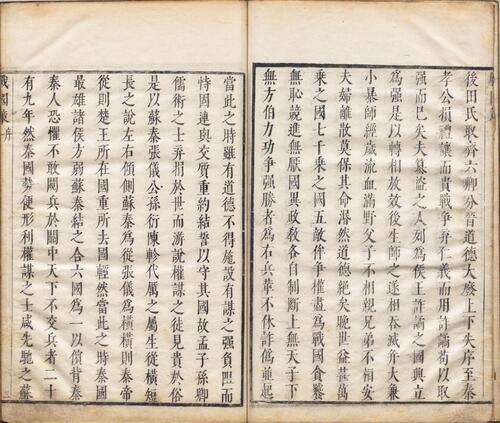 後田氏取齊六卿分晉道德大廢上下失序至秦
孝公捐禮讓而貴戰爭弃仁義而用詐譎苟以取
强而已矣夫篡盜之人列為侯王詐譎之國興立
為强是以轉相放效後生師之遂相吞滅并大兼
小暴師經歲流血滿野父子不相親兄弟不相安
夫婦離散莫保其命湣然道德絶矣晚世益甚萬
乘之國七千乘之國五敵侔争權盡為戰國貪饕
無恥競進無厭國異政教各自制斷上無天子下
無方伯力功争强勝者為右兵革不休詐偽並起
當此之時雖有道德不得施設有謀之强負岨而
恃固連與交質重約結誓以守其國故孟子孫卿
儒術之士弃捐於世而游說權謀之徒見貴於俗
是以蘇秦張儀公孫衍陳軫代厲之屬生從橫短
長之說左右傾側蘇秦為從張儀為橫橫則秦帝
從則楚王所在國重所去國輕然當此之時秦國
最雄諸侯方弱蘇秦結之合六國為一以儐背秦
秦人恐懼不敢闚兵於關中天下不交兵者二十
有九年然秦國勢便形利權謀之士咸先馳之蘇
戰國策